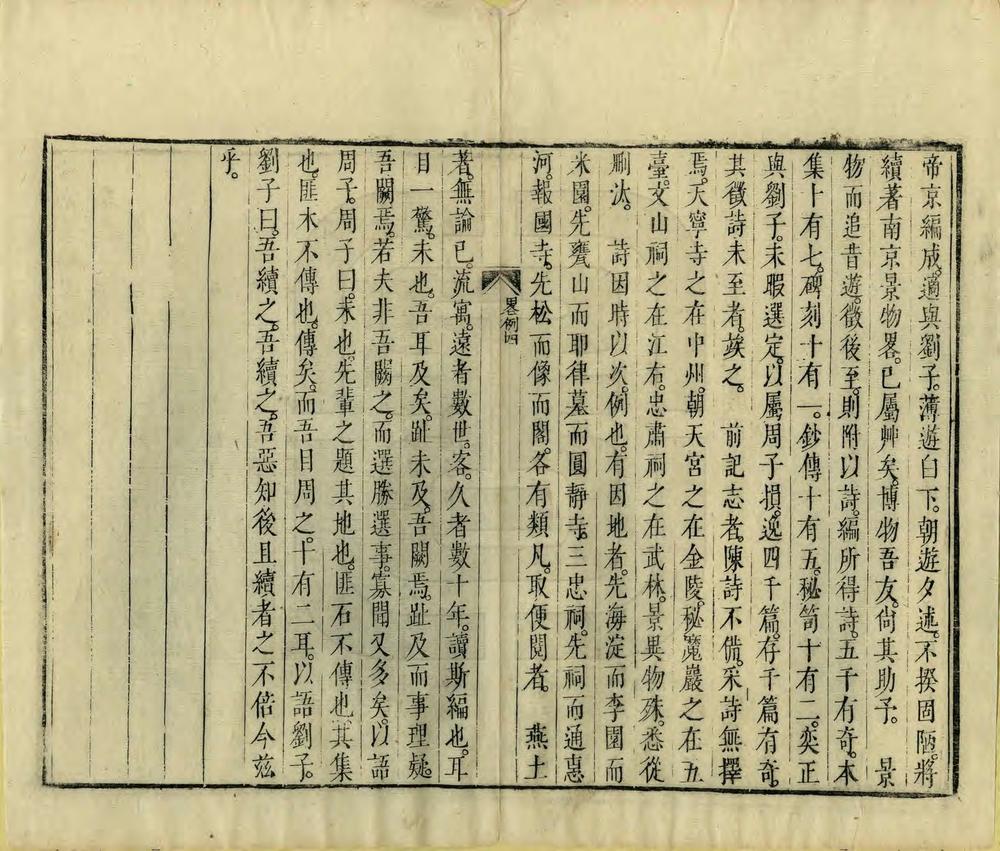 帝京編成。適與劉子。薄遊白下。朝遊夕述。不揆固陋。將
續著南京景物畧。已屬艸矣。博物吾友。尙其助予。　景
物而追昔遊。徵後至。則附以詩。編所得詩。五千有奇。本
集十有七。碑刻十有一。鈔傳十有五。秘笥十有二。奕正
與劉子。未暇選定。以屬周子損。逸四千篇。存千篇有奇。
其徵詩未至者。竢之。　前記志者。陳詩不僃。采詩無擇
焉。天寧寺之在中州。朝天宮之在金陵。秘魔巖之在五
臺。文山祠之在江右。忠肅祠之在武林。景異物殊。悉從
刪汰。　詩因時以次。例也。有因地者。先海淀而李園而
米園。先甕山而耶律墓而圓靜寺。三忠祠。先祠而通惠
河。報國寺。先松而像而閣。各有類凡。取便閱者。　燕土
畧例四
著。無論已。流寓。遠者數世。客。久者數十年。讀斯編也。耳
目一驚。未也。吾耳及矣。趾未及。吾闕焉。趾及而事理疑。
吾闕焉。若夫非吾闕之。而選勝選事。寡聞又多矣。以語
周子。周子曰。未也。先輩之題其地也。匪石不傳也。其集
也。匪木不傳也。傳矣。而吾目周之。十有二耳。以語劉子。
劉子曰。吾續之。吾續之。吾惡知後且續者之不倍今玆
乎。